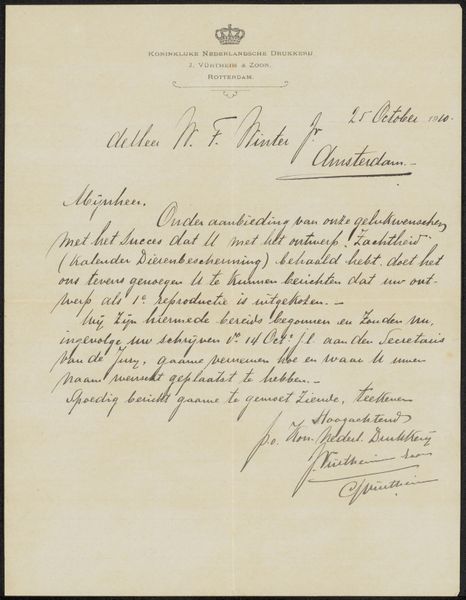 KONINKLIJKE NEDERLANDSCHE DRUKKERIJ
J. VÜRTHEIM & ZOON.
ROTTERDAM.
25 October 1910.
de Heer W. F. Winter Jr
Amsterdam.-
Mijnheer.
Onder aanbieding van onze gelukwenschen
met het succes dat U met het ontwerp "Zachtheid
(Kalender Dierenbescherming) behaald hebt, doet het
ons tevens genoegen U te kunnen berichten dat uw ont-
werp als 1e reproductie is uitgekozen.-
Wij zijn hiermede bereids begonnen en zouden nu,
ingevolge uw schrijven van 14 Oct. j.l. aan den Secretaris
van de Jury, gaarne vernemen hoe en waar U uwen
naam wenscht geplaatst te hebben.-
Spoedig bericht gaarne te gemoet ziende, teekenen
Hoogachtend
p.o. Kon. Nederl. Drukkerij
J. Vürtheim & Zoon
C J Vürtheim